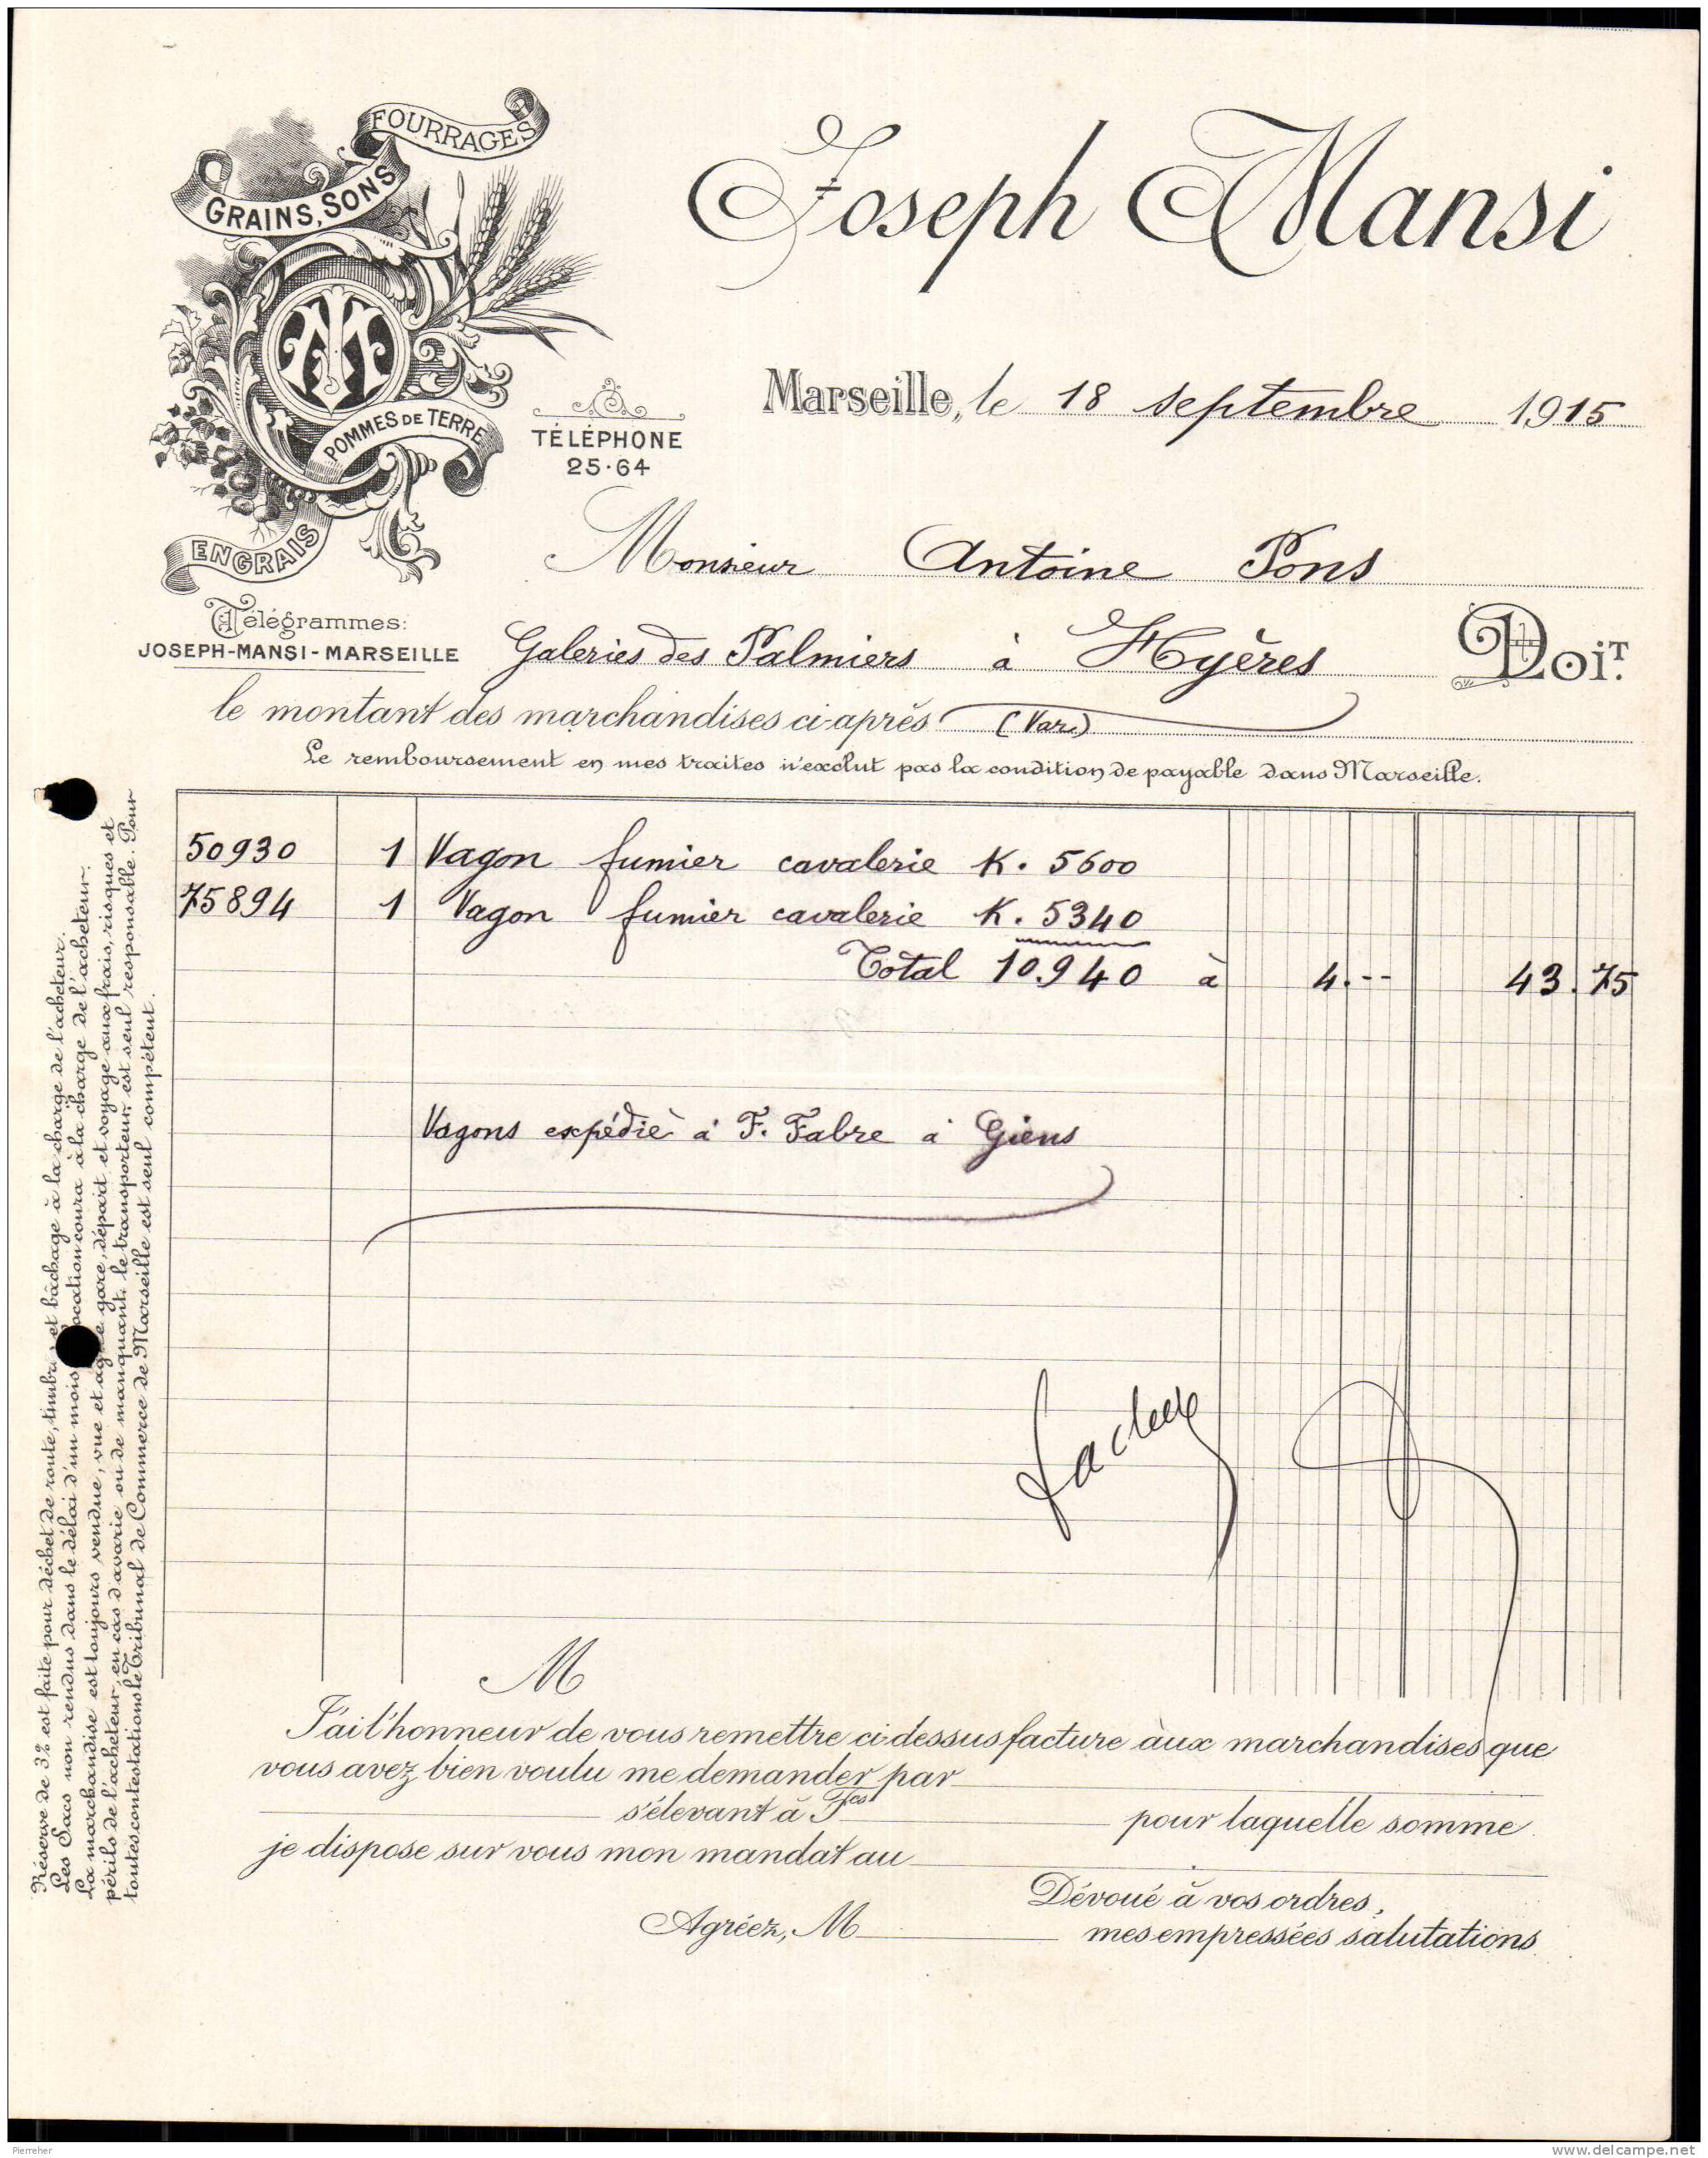 FOURRAGES
GRAINS, SONS
POMMES DE TERRE
ENGRAIS
Joseph Mansi
TÉLÉPHONE
25·64
Marseille, le 18 septembre 1915
Monsieur Antoine Pons
Télégrammes:
JOSEPH-MANSI-MARSEILLE
Galeries des Palmiers à Hyères
Doit.
le montant des marchandises ci-après (Var)
Le remboursement en mes traites n'exclut pas la condition de payable dans Marseille.
50930 1 Vagon fumier cavalerie K. 5600
75894 1 Vagon fumier cavalerie K. 5340
Total 10.940 à 4.-- 43.75
Vagons expédié à F. Fabre à Giens
M
J'ai l'honneur de vous remettre ci-dessus facture aux marchandises que
vous avez bien voulu me demander par
s'élevant à Fcs
pour laquelle somme
je dispose sur vous mon mandat au
Dévoué à vos ordres,
Agréez, M mes empressées salutations
Réserve de 3% est faite pour déchet de route, timbre et bâchage à la charge de l'acheteur.
Les Sacs non rendus dans le délai d'un mois location coura à la charge de l'acheteur.
La marchandise est toujours vendue, vue et agréée gare, départ et voyage aux frais, risques et
périls de l'acheteur, en cas d'avarie ou de manquant, le transporteur est seul responsable. Pour
toutes contestations le Tribunal de Commerce de Marseille est seul compétent.
Pierreher
www.delcampe.net